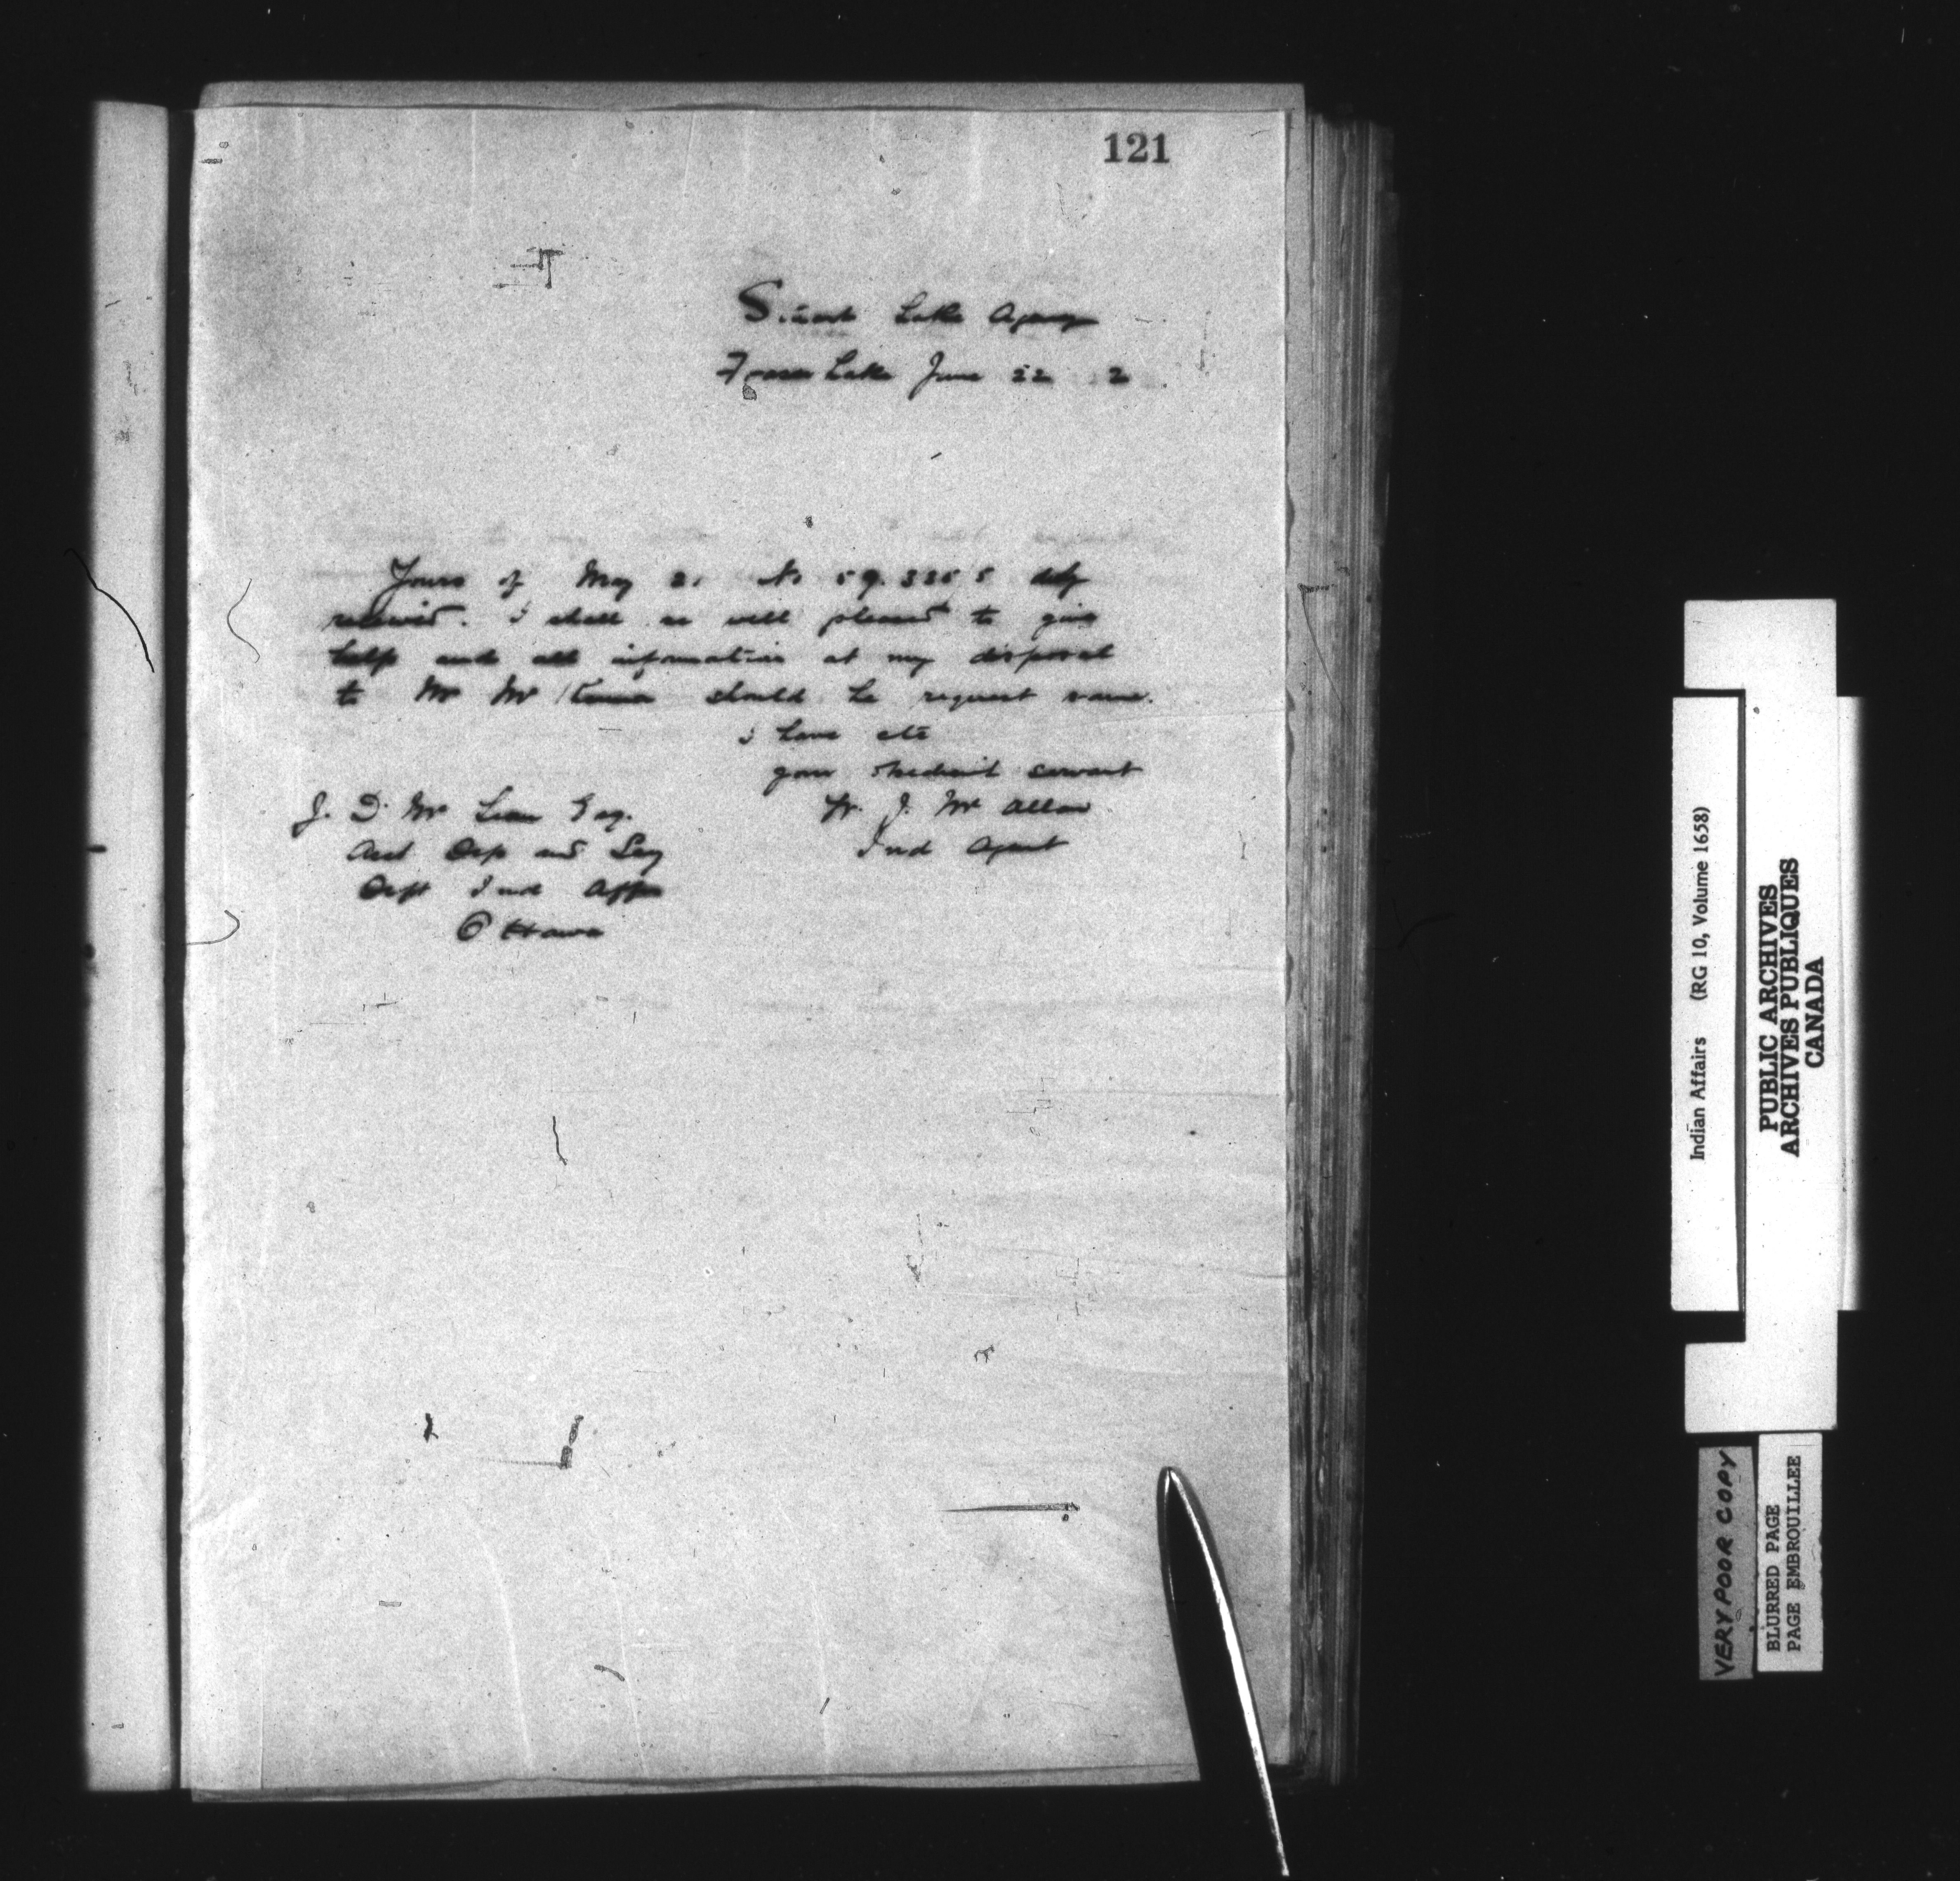 121
Stuart Lake Agency
Fraser Lake June 22 2
Yours of May 21 No 59.335 5 duly
received. I shall be well pleased to give
help and all information at my disposal
to Mr Mc should he request same.
I have etc
your obedient servant
W. J. Mc Allan
Ind Agent
J. D. Mc Lean Esq.
Asst Dep and Secy
Dept Ind Affrs
Ottawa
Indian Affairs (RG 10, Volume 1658)
PUBLIC ARCHIVES
ARCHIVES PUBLIQUES
CANADA
VERY POOR COPY
BLURRED PAGE
PAGE EMBROUILLEE